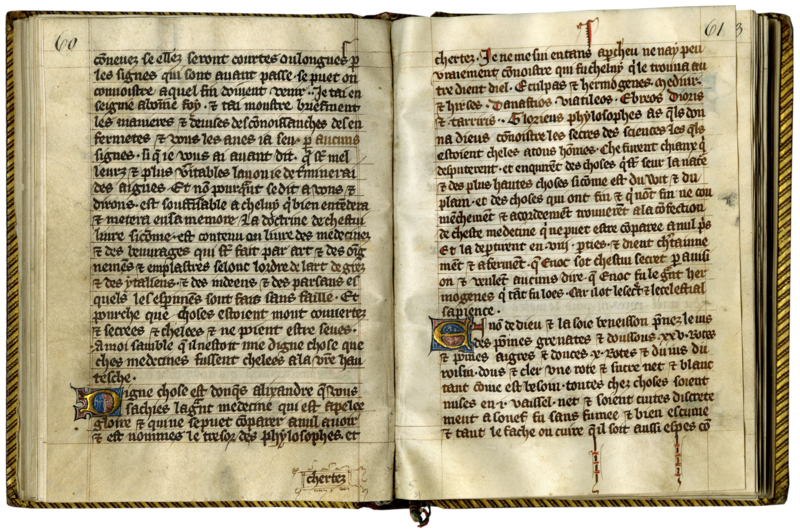 60
co̅nevez se elles seront courtes ou longues p̱
les signes qui sont auant passe · se puet on
connoistre aquel fin doivent venir · Je tai en
seigne abo̅ne foy · ⁊ tai monstre briefment
les manieres ⁊ deuises de co̅noissanches des en
fermetes ⁊ vous les anes ia seu · p̱ aucuns
signes · si q̅ ie vous ai auant dit · q̅ st̅ mel
leurs ⁊ plus v̅itables la u ie de t̅minerai
des aigues · Et no̅ pourq̅nt se dit a vons ⁊
dirons · est souffisable a cheluy q̅ bien ente̅dera
⁊ metera en sa memore · La doctrine de chestui
liure sico̅me est contenu ou liure des medecines
⁊ des beuurages qui st̅ fait par art ⁊ des oig
neme̅s ⁊ emplastres selonc lordre de lart de grez
⁊ des ytaliens · ⁊ des indeens ⁊ des parsans es
quels les espriuues sont sans faille · Et
pourche que choses estoient mont couuertez
⁊ secrees ⁊ chelees ⁊ ne poient estre seues ·
A moi samble q̅ il nestoit mie digne chose que
ches medecines fussent chelees a la v̅re hau
tesche ·
Digne chose est donq̅s alixandre q̅ vous
sachies la g̅nt medecine qui est apelee
gloire ⁊ qui ne se puet co̅parer a nul auoir
⁊ est nommes le tresor des phylosophes · et
chertez
61
3
chertez · Je ne me sui en tans ap̅cheu ne nay peu
vraiement co̅noistre qui fu cheluy q̅ le trouua au
tre dient diel · Esculpas ⁊ hermogenes · medur ·
⁊ hirses · Danastios viatileos · Ebreos dioris
⁊ tarriris · Gloriens phylosophes as q̅ls don
na dieus co̅noistre les secres des sciences les q̅ls
estoient cheles a tous ho̅mes · Che furent chiaux q̅
desputerent · ⁊ enquirent des choses q̅ st̅ seur la nat̅e
⁊ des plus hautes choses sico̅me est du wit ⁊ du
plain · et des choses qui ont fin ⁊ q̅ no̅t fin ne co̅
me̅chement ⁊ acordeement trouuere̅t a la co̅fection
de cheste medecine q̅ ne puet estre co̅paree a nul p̅s
Et la dep̱tirent en · viii · p̱ties · ⁊ dient ch̅taiune
me̅t ⁊ aferment · q̅ Enoc sot chestui secret p̱ auisi
on ⁊ weulet aucuns dire · q̅ Enoc fu le g̅nt her
mogenes q̅ ta̅t fu loes · Car il ot le secr̅et le celestial
sapience ·
En no̅ de dieu ⁊ la soie beneisson p̅nez le ius
des po̅mes grenates ⁊ doussous · xxv · Rotes
⁊ po̅mes aigres ⁊ douces · x · Rotes ⁊ du ius du
roisin · dous ⁊ cler vne rote ⁊ sucre net ⁊ blanc
tant co̅me est besoin · toutes chez choses soient
mises en · i · vaissel · net ⁊ soient cuites discrete
ment a souef fu sans fumee ⁊ bien escume
⁊ tant le fache on cuire q̅ il soit aussi espes co̅